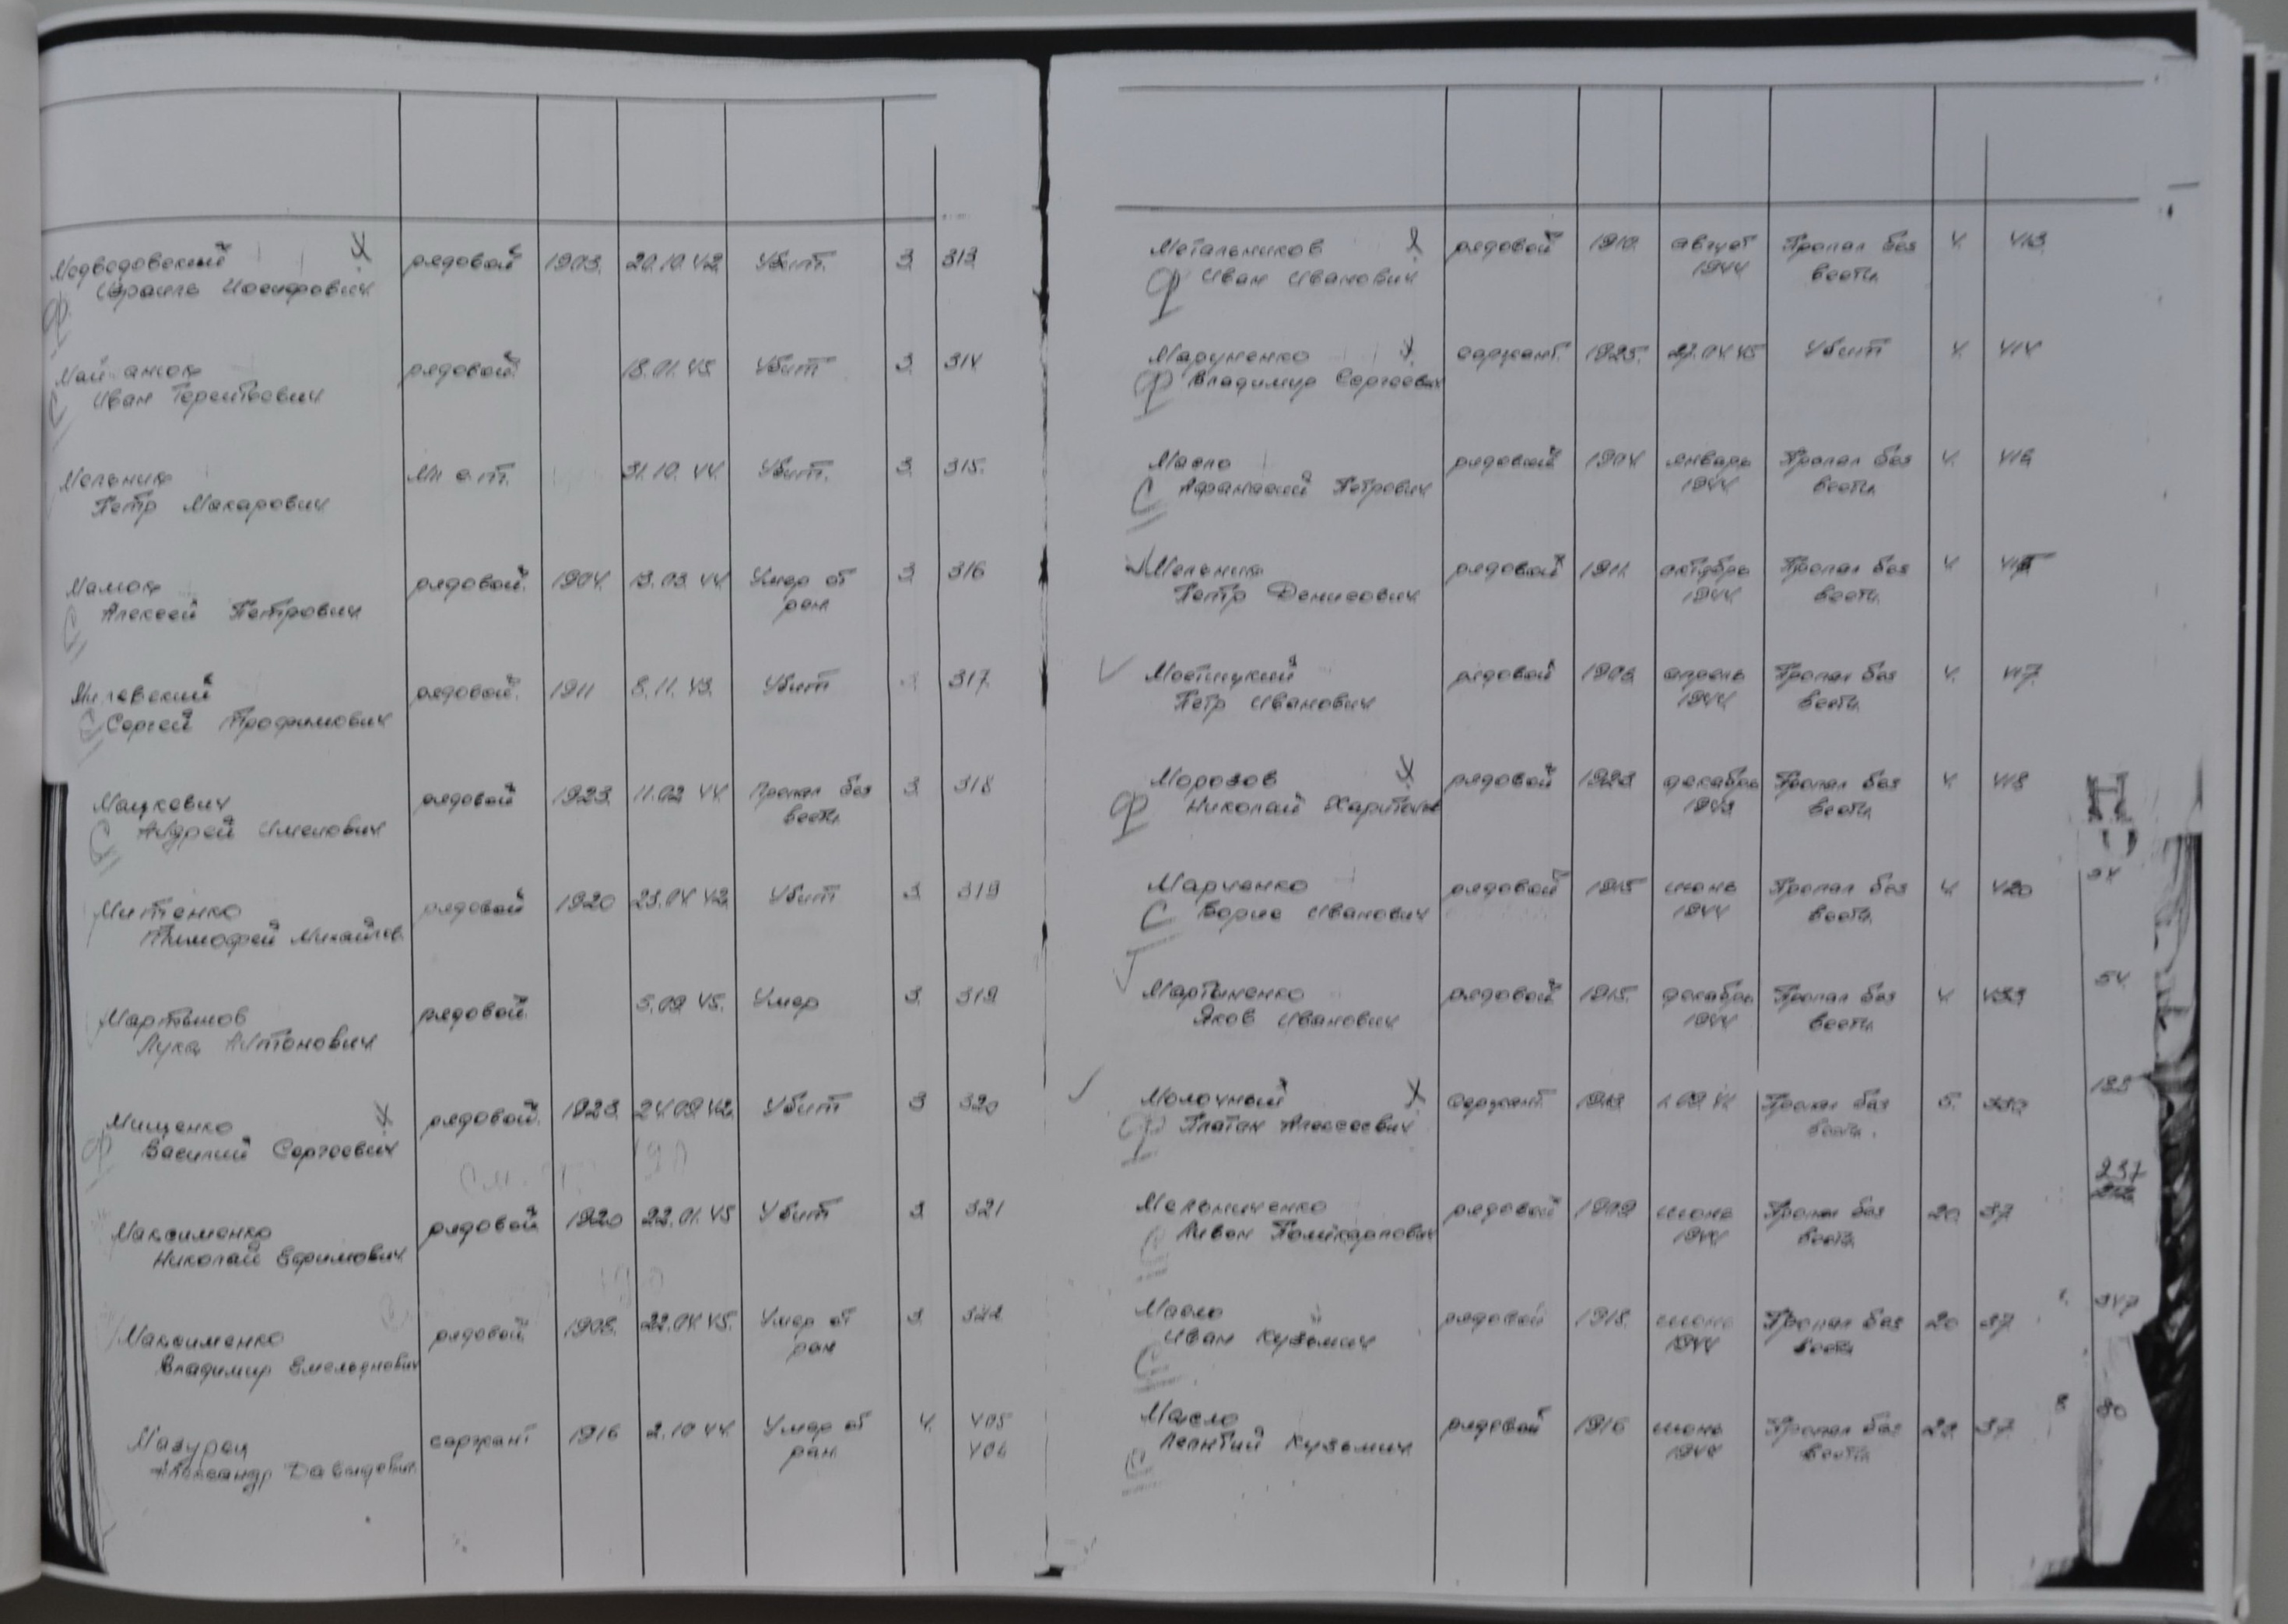 Медведовский рядовой 1903. 20.10.42 Убит. 3. 313.
Израиль Иосифович
Ф
рядовой 18.01.45. Убит 3. 314.
С Иван Терентьевич
Мельник Мл с.т. 31.10.44. Убит. 3. 315.
Петр Макарович
Мамок рядовой. 1904. 13.03.44 Умер от 3. 316
С Алексей Петрович ран.
Милевский рядовой. 1911 8.11.43. Убит 317.
С Сергей Трофимович
Мацкевич рядовой 1923. 11.02.44. Пропал без 3. 318
С Андрей вести
Митенко рядовой 1920 23.04.42. Убит 3. 319
Тимофей Михайлов.
Мартынов рядовой. 45. Умер 3. 319
Лука Антонович
Мищенко рядовой. 1923. 24.09.42. Убит 3 320
Ф Василий Сергеевич
190
Максименко рядовой 1920 22.01.45 Убит 3 321
Николай Ефимович
190
Максименко рядовой. 1908. 22.04.45. Умер от 3. 322
Владимир Емельянович ран
Мазурец сержант 1916 2.10.44. Умер от 4. 405
Александр Давидович. ран. 406
Метальников рядовой 1910. август Пропал без 4. 413.
Ф Иван Иванович 1944 вести.
Маруненко сержант. 1925. 27.04.45 Убит 4. 414
Ф Владимир Сергеевич
Масло рядовой 1904. январь Пропал без 4.
С Афанасий Петрович 1944. вести.
Мельник рядовой 1911. октябрь Пропал без 4.
Петр Денисович 1944. вести.
Мостицкий рядовой 1903. апрель Пропал без 4. 417.
Петр Иванович 1944 вести.
Морозов рядовой 1923 декабрь Пропал без 4. 418
Ф Николай Харитонов 1943 вести.
Н
Марченко рядовой 1915 июнь Пропал без 4. 420
С Борис Иванович 1944 вести.
Мартыненко рядовой 1915. декабрь Пропал без 4. 433 54.
Яков Иванович 1944 вести.
Молочный сержант. Пропал без 5. 133
Ф Платон Алексеевич вести.
237
Мельниченко рядовой 1909 июнь Пропал без 20. 37
С Поликарпович 1944 вести.
Масло рядовой 1918. июнь Пропал без 20 37 347
С Иван Кузьмич 1944 вести
Масло рядовой 1916 июнь Пропал без 37 8 80
С Леонтий Кузьмич 1944 вести.